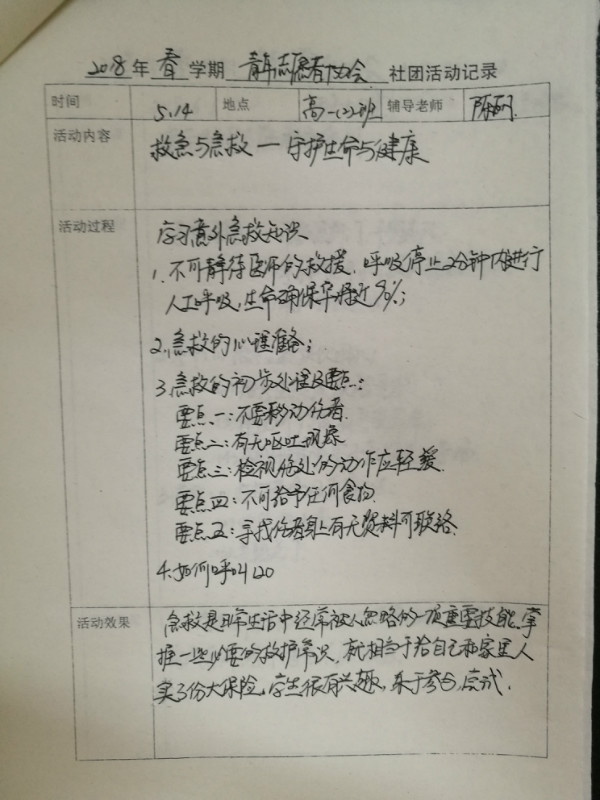 2018年 春 学期 青年志愿者协会 社团活动记录
时间 5.14 地点 高一(2)班 辅导老师 陈
活动内容 救急与急救一守护生命与健康
活动过程
学习意外急救知识
1. 不可静待医师的救援, 呼吸停止2分钟内进行
人工呼吸,生命确保率将近90%;
2. 急救的心理准备;
3. 急救的初步处理及要点:
要点一:不要移动伤者.
要点二:有无呕吐现象
要点三:检视伤处的动作应轻缓.
要点四:不可给予任何食物.
要点五:寻找伤者身上有无资料可联络.
4. 如何呼叫120
活动效果
急救是日常生活中经常被人忽略的一项重要技能,掌
握一些必要的救护常识,就相当于给自己和家里人
买了份大保险,学生很有兴趣,乐于参与,尝试.